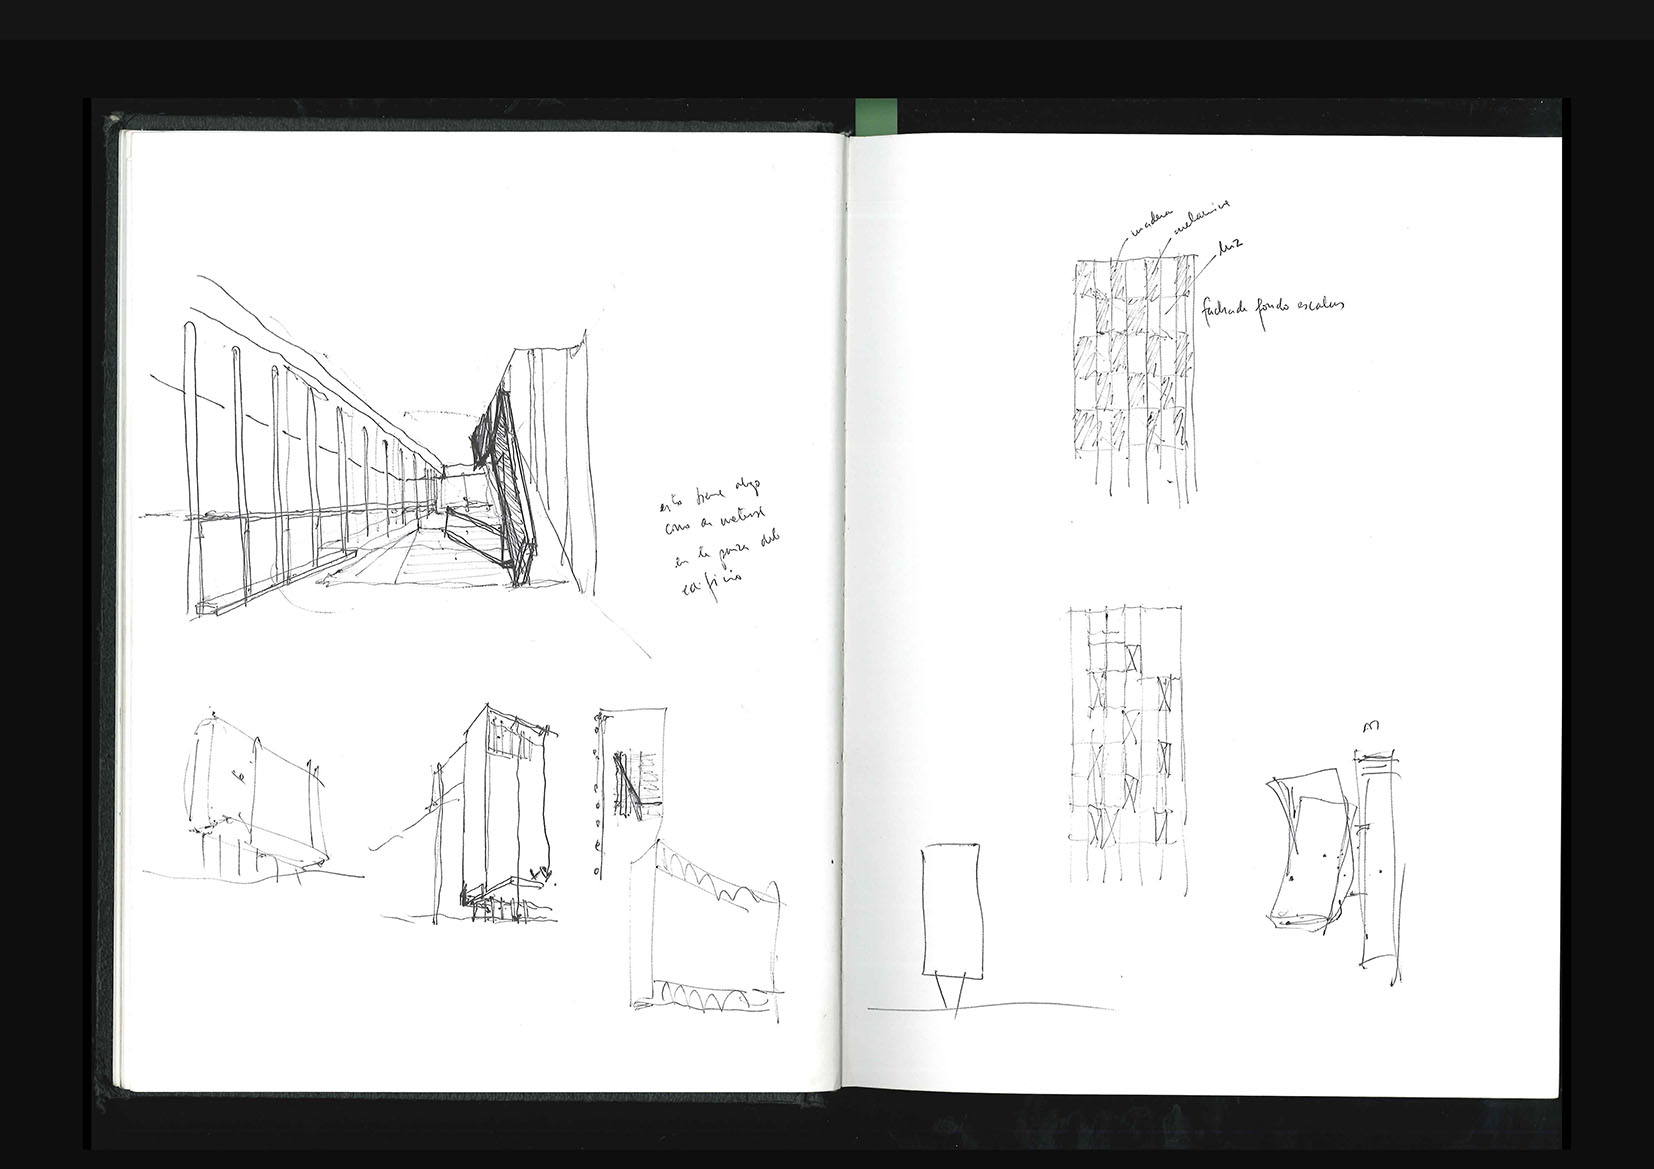 esto tiene algo
como de meterse
en la panza del
edificio
madera
melamina
luz
fachada fondo escaleras